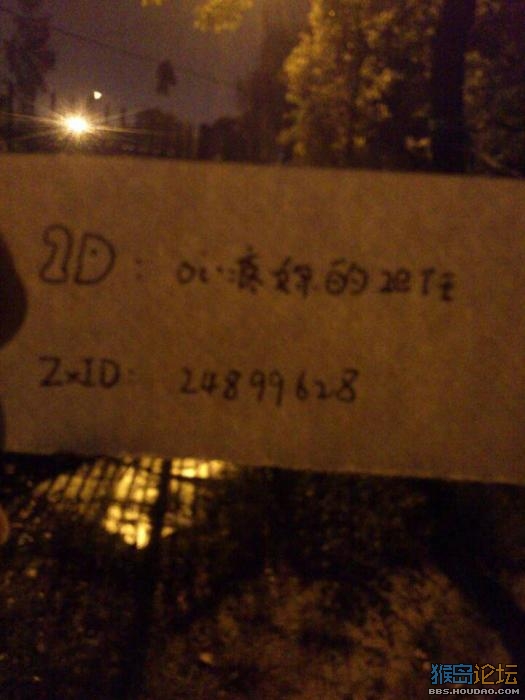 ID: oi
的担任
ZxID: 24899628
猴岛论坛
BBS.HOUDAO.COM